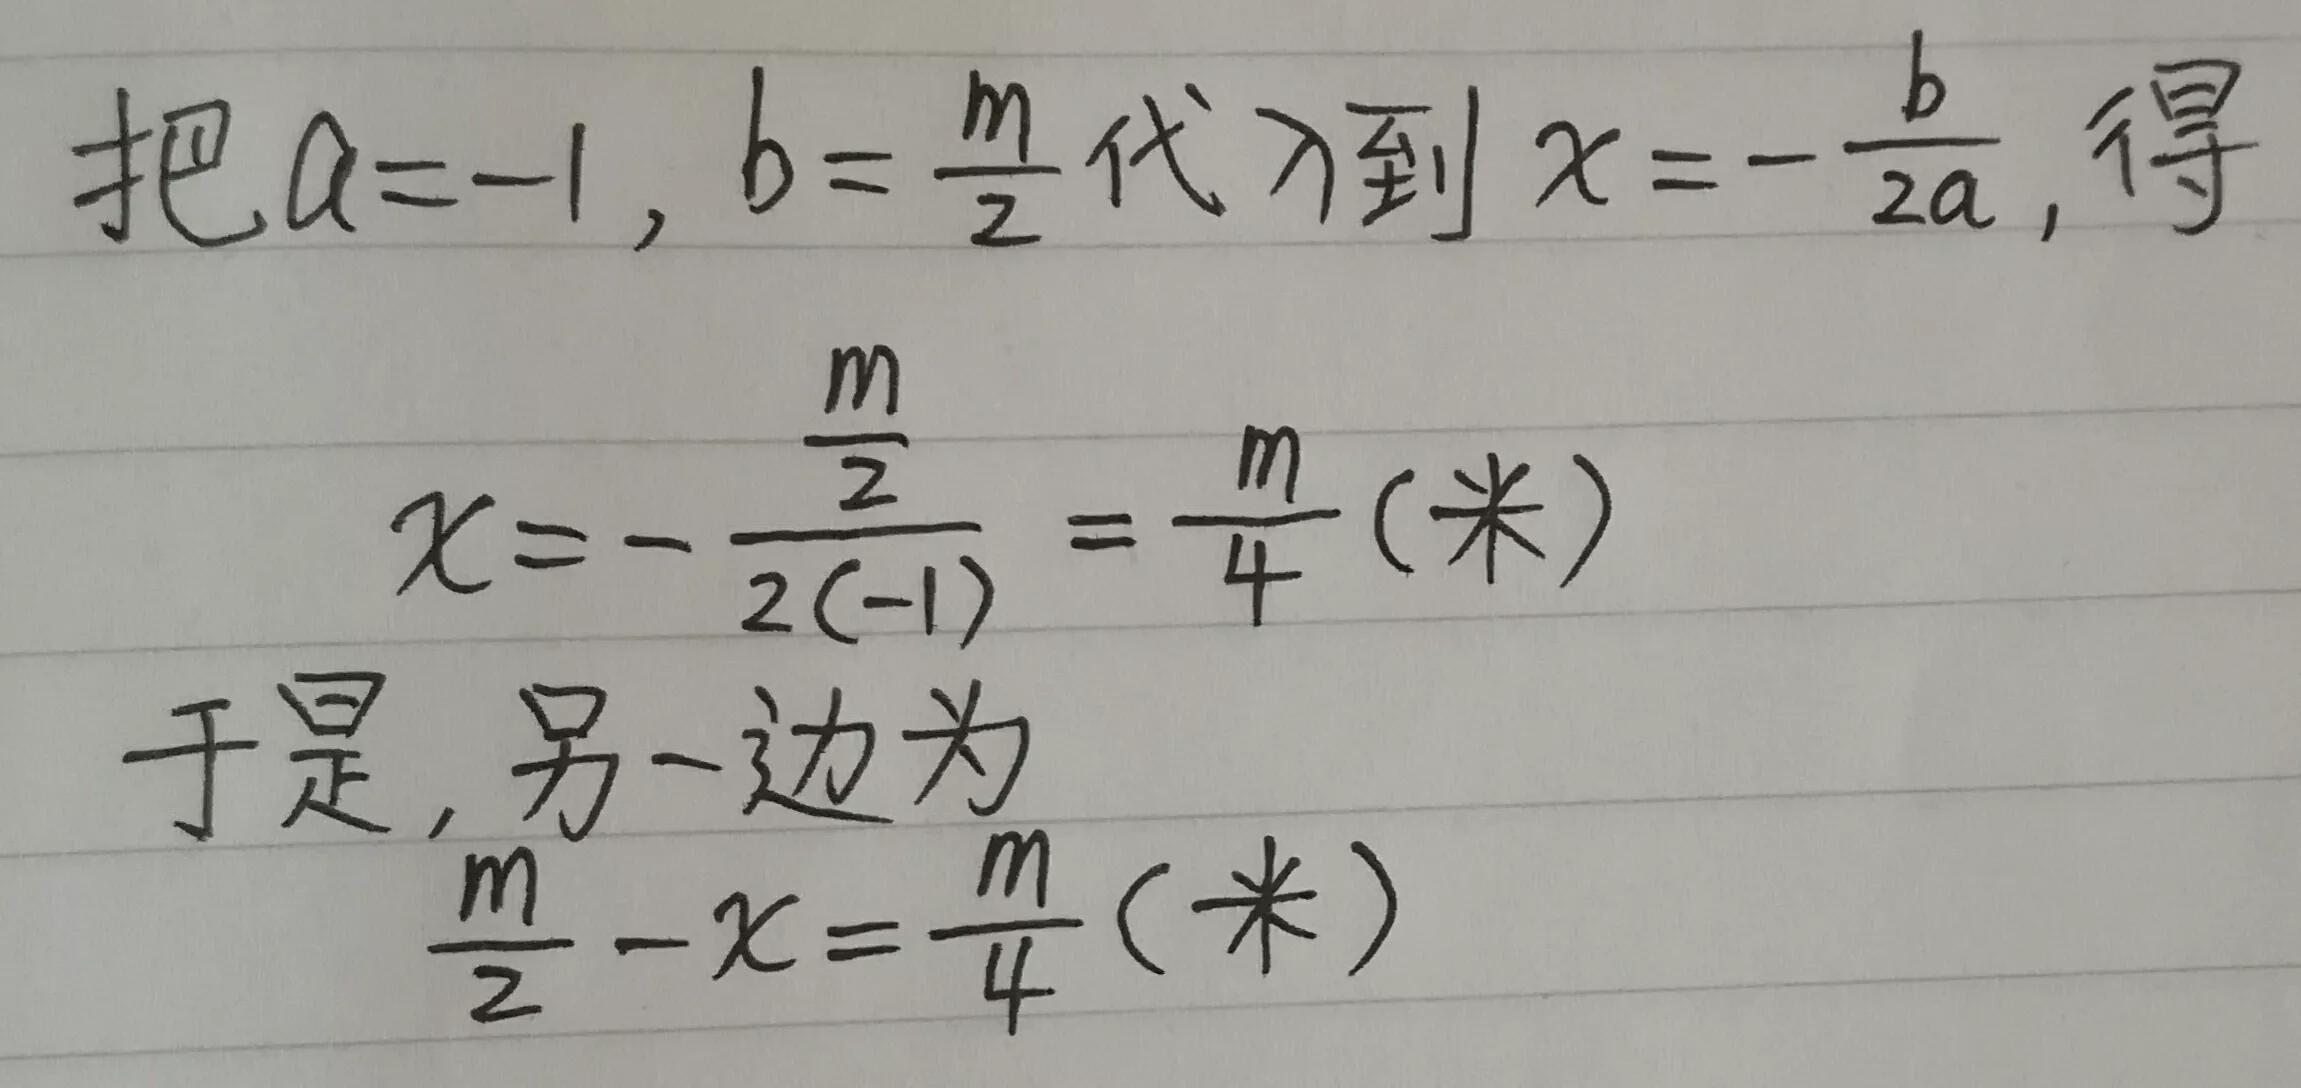 把a=-1, b=\frac{m}{2}代入到 x=-\frac{b}{2a}, 得
x=-\frac{\frac{m}{2}}{2(-1)}=\frac{m}{4}(米)
于是, 另一边为
\frac{m}{2}-x=\frac{m}{4}(米)